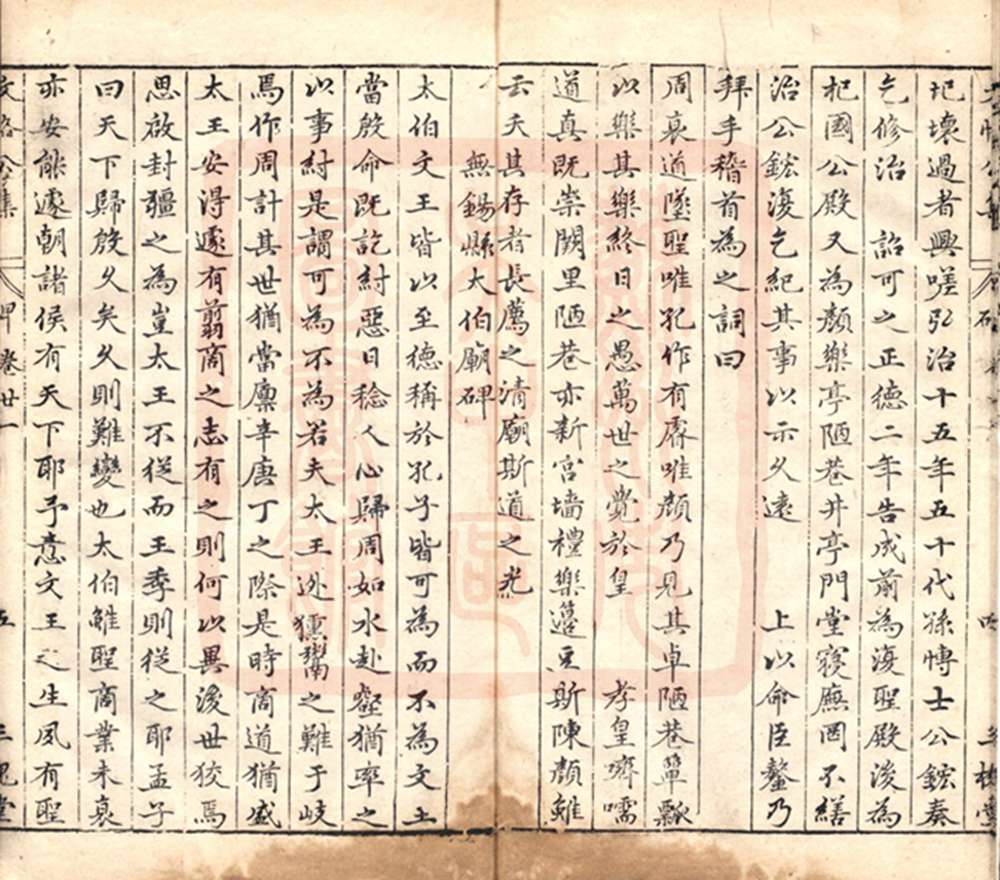 圮壞過者興嗟弘治十五年五十代孫愽士公鋐奏
乞修治　詔可之正德二年告成前為復聖殿後為
杞國公殿又為顏樂亭陋巷井亭門堂寝廡罔不繕
治公鋐復乞紀其事以示久遠　上以命臣鏊乃
拜手稽首為之詞曰
周衰道墜聖唯孔作有睎唯顏乃見其卓陋巷簞瓢
以樂其樂終日之愚萬世之覺於皇　孝皇嚌嚅
道真既崇闕里陋巷亦新宮墻禮樂籩豆斯陳顏雖
云夭其存者長薦之清廟斯道之光
無錫縣太伯廟碑
太伯文王皆以至德稱於孔子皆可為而不為文王
當殷命既訖紂惡日稔人心歸周如水赴壑猶率之
以事紂是謂可為不為若夫太王迯獯鬻之難于岐
焉作周計其世猶當廩辛唐丁之際是時商道猶盛
太王安得遽有翦商之志有之則何以異後世狡焉
思啟封疆之為豈太王不從而王季則從之耶孟子
曰天下歸殷久矣久則難變也太伯雖聖商業未衰
亦安能遽朝諸侯有天下耶予意文王之生夙有聖
文恪公集　碑　卷廿一　五　三槐堂